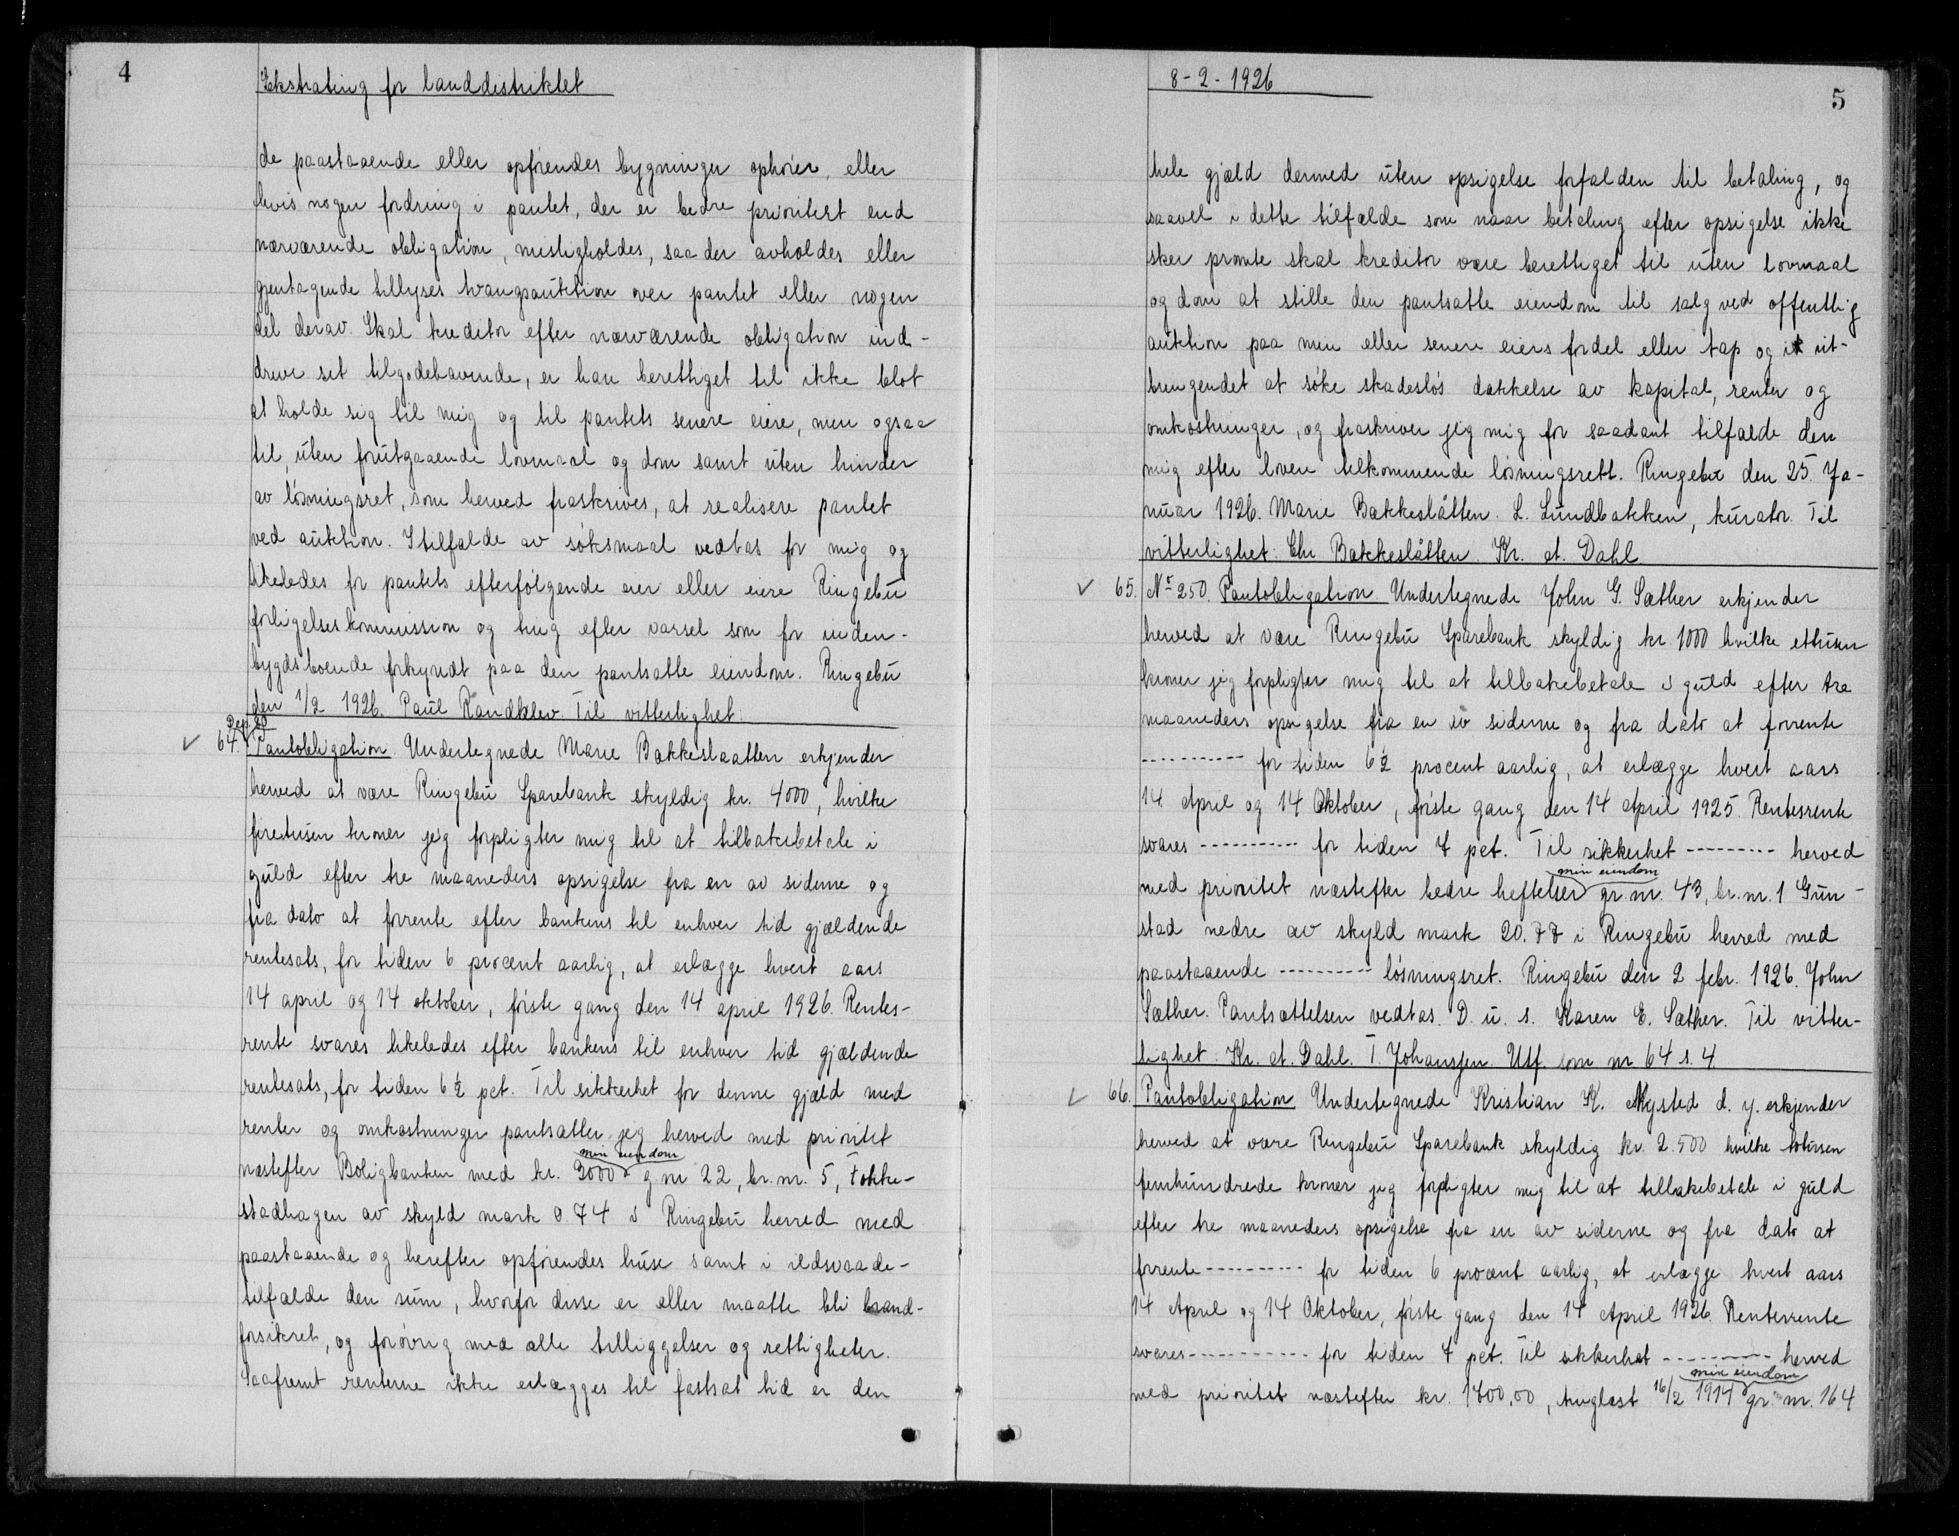 4
Ekstrating for landdistriktet
de paastaaende eller opførendes bygninger ophører, eller
hvis nogen fordring i pantet, der er bedre prioritert end
nærværende obligation, misligholdes, saa der avholdes eller
gjentagende tillyses tvangsauktion over pantet eller nogen
del derav. Skal kreditor efter nærværende obligation ind-
drive sit tilgodehavende, er han berettiget til ikke blot
at holde sig til mig og til pantets senere eiere, men ogsaa
til, uten forutgaaende lovmaal og dom samt uten hinder
av løsningsret, som herved fraskrives, at realisere pantet
ved auktion. I tilfælde av søksmaal vedtas for mig og
likeledes for pantets efterfølgende eier eller eiere Ringebu
forligelseskommission og ting efter varsel som for inden-
bygdsboende forkyndt paa den pantsatte eiendom. Ringebu
den 1/2 1926. Paul Randklev. Til vitterlighet.
64. Pantobligation Undertegnede Marie Bakkeslaatten erkjender
herved at være Ringebu Sparebank skyldig kr. 4000, hvilke
firetusen kroner jeg forpligter mig til at tilbakebetale i
guld efter tre maaneders opsigelse fra en av siderne og
fra dato at forrente efter bankens til enhver tid gjældende
rentesats, for tiden 6 procent aarlig, at erlægge hvert aars
14 april og 14 oktober, første gang den 14 april 1926. Rentes-
rente svares likeledes efter bankens til enhver tid gjældende
rentesats, for tiden 6½ pct. Til sikkerhet for denne gjæld med
renter og omkostninger pantsætter jeg herved med prioritet
min eiendom
næstefter Boligbanken med kr. 3000 g nr 22, br. nr. 5, Fokke-
stadhagen av skyld mark 0.74 i Ringebu herred med
paastaaende og herefter opførendes huse samt i ildsvaade-
tilfælde den sum, hvorfor disse er eller maatte bli brand-
forsikret, og forøvrig med alle tilliggelser og rettigheter.
Saafremt renterne ikke erlægges til fastsat tid er den
8-2-1926
5
hele gjæld dermed uten opsigelse forfalden til betaling, og
saavel i dette tilfælde som naar betaling efter opsigelse ikke
sker promte skal kreditor være berettiget til uten lovmaal
og dom at stille den pantsatte eiendom til salg ved offentlig
auktion paa min eller senere eiers fordel eller tap og i ut-
bringendet at søke skadesløs dækkelse av kapital, renter og
omkostninger, og fraskriver jeg mig for saadant tilfælde den
mig efter loven tilkommende løsningsrett. Ringebu den 25. Ja-
nuar 1926. Marie Bakkeslåtten. L. Lundbakken, kurator. Til
vitterlighet. Chr Bakkeslåtten. Kr. A. Dahl.
65. Nr 250. Pantobligation Undertegnede John G. Sæther erkjender
herved at være Ringebu Sparebank skyldig kr. 1000 hvilke ettusen
kroner jeg forpligter mig til at tilbakebetale i guld efter tre
maaneders opsigelse fra en av siderne og fra dato at forrente
---------- for tiden 6½ procent aarlig, at erlægge hvert aars
14. April og 14 Oktober, første gang den 14 April 1925. Rentesrente
svares ---------- for tiden 7 pct. Til sikkerhet --------- herved
min eiendom
med prioritet næstefter bedre heftelser gr. nr. 43, br. nr. 1 Gun-
stad nedre av skyld mark 20.77 i Ringebu herred med
paastaaende ---------- løsningsret. Ringebu den 2 febr. 1926. John
Sæther. Pantsættelsen vedtas. D. u. s. Karen E. Sæther. Til vitter-
lighet. Kr. A. Dahl. T. Johanssen. Utf. som nr 64 s. 4.
66. Pantobligation Undertegnede Kristian K. Nysted d. y. erkjender
herved at være Ringebu Sparebank skyldig kr. 2.500 hvilke totusen
femhundrede kroner jeg forpligter mig til at tilbakebetale i guld
efter tre maaneders opsigelse fra en av siderne og fra dato at
forrente ---------- for tiden 6 procent aarlig, at erlægge hvert aars
14 April og 14 Oktober, første gang den 14 April 1926. Rentesrente
svares ------------ for tiden 7 pct. Til sikkerhet ---------- herved
min eiendom
med prioritet næstefter kr. 1700,00, tinglæst 16/2 1914 gr. nr. 164